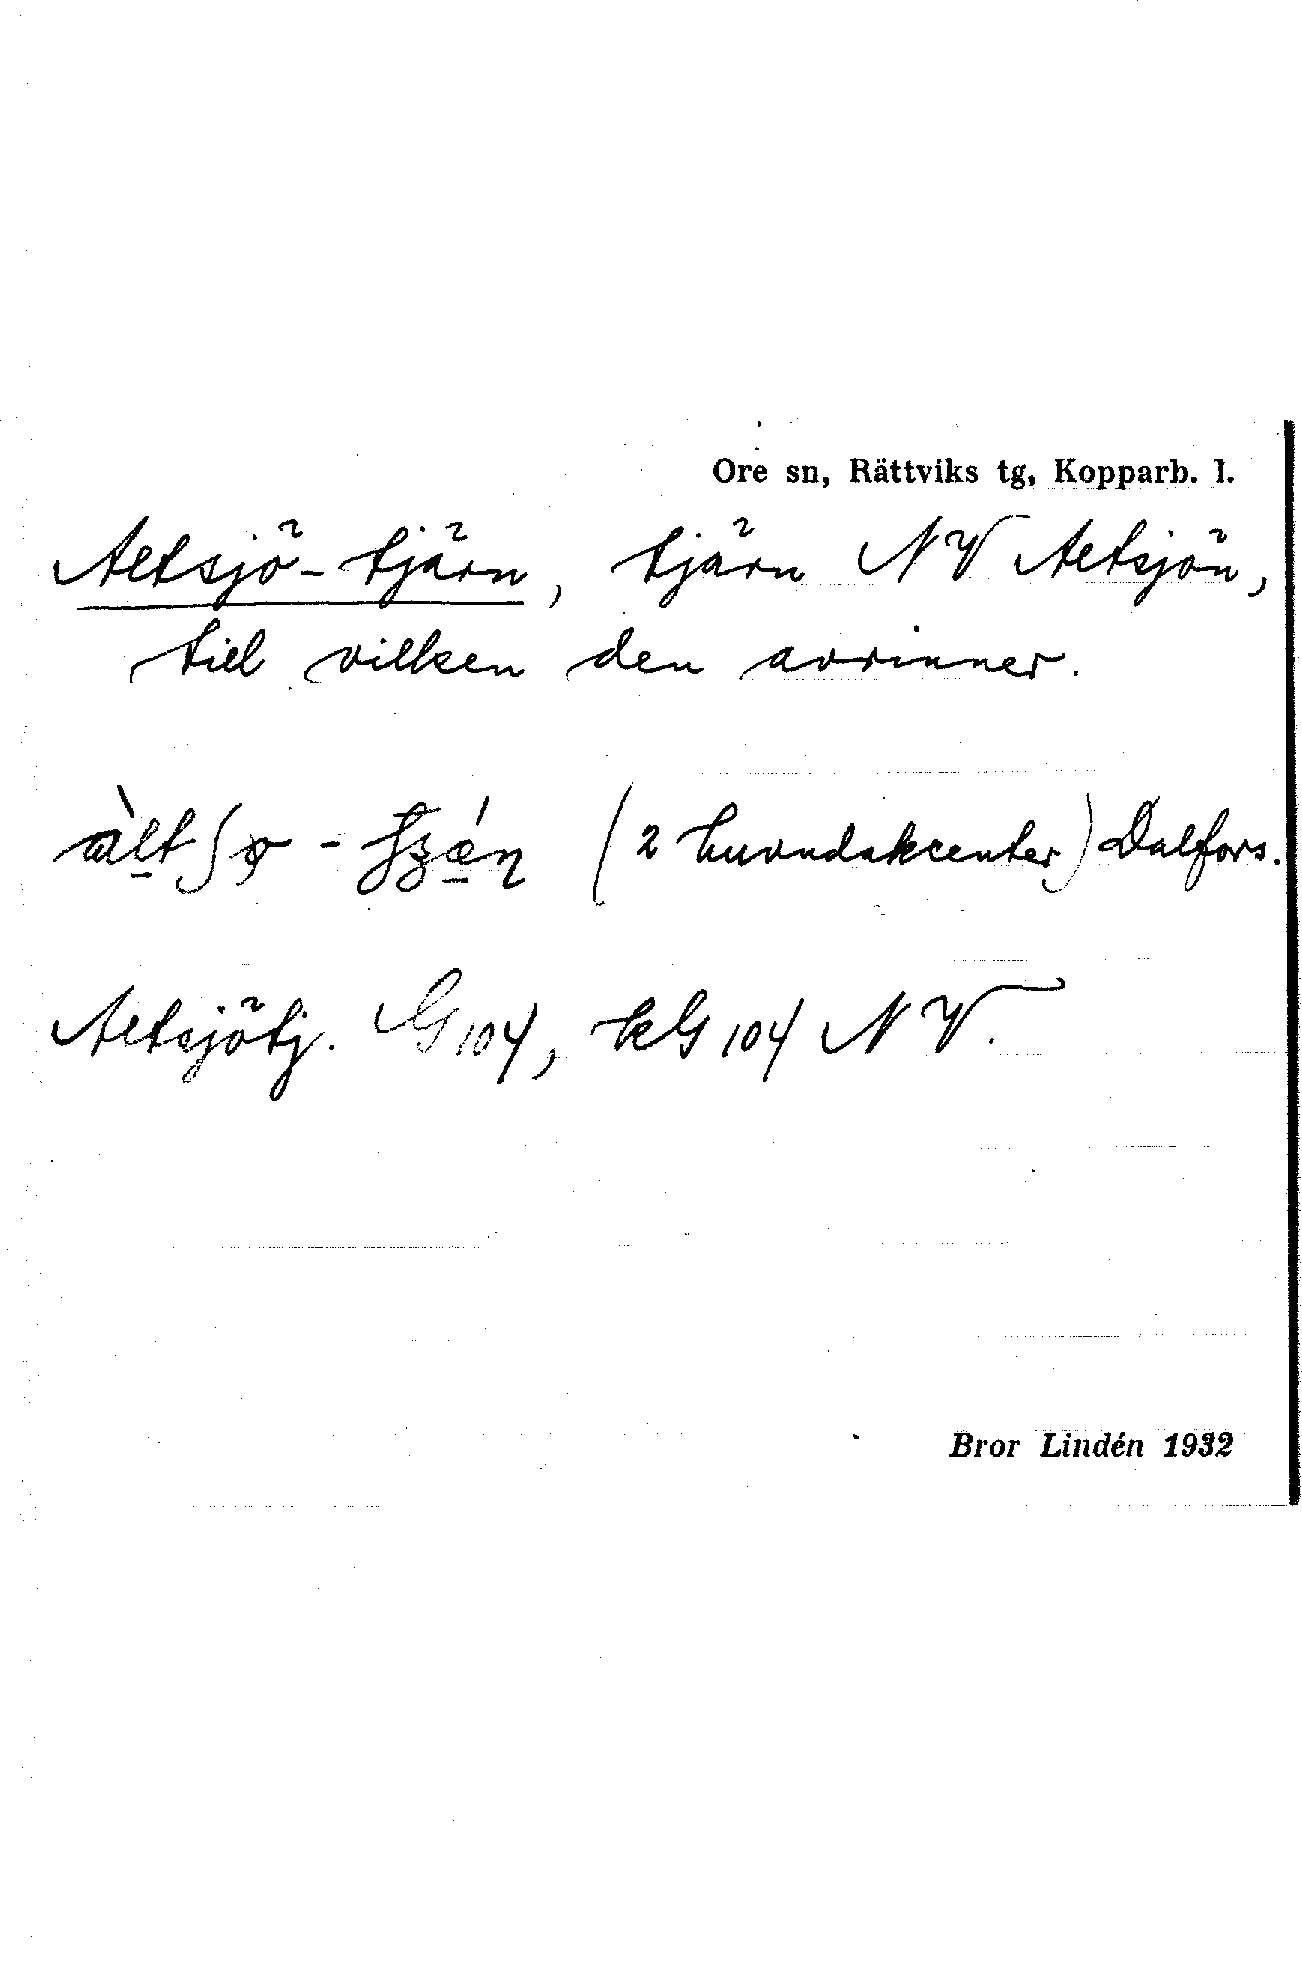 Ore sn, Rättviks tg, Kopparb. l.
Altsjö-tjärn, tjärn NV Altsjön,
till vilken den avrinner.
(2 huvudakcenter) Dalfors.
Altsjötj. G 104, kG 104 NV.
Bror Lindén 1932